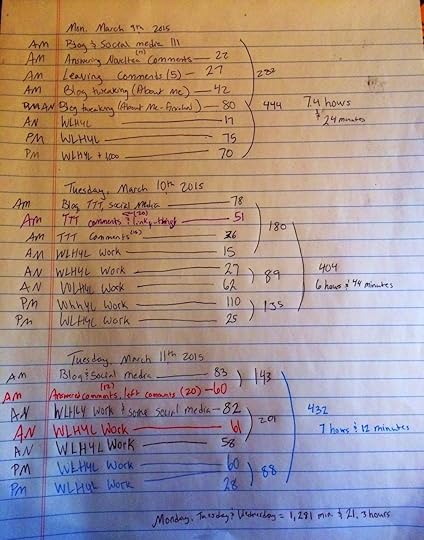 Mon. March 9th 2015
AM Blog & Social media 111
AM Answering Noveltea (11) Comments — 22
AM Leaving Comments (5) — 27 282
AM Blog tweaking (About Me) — 42
AN Blog tweaking (About Me - Finished) — 80 444 7.4 hours & 24 minutes
AN WLHYL — 17
PM WLHYL — 75
PM WLHYL + 1000 — 70
Tuesday, March 10th 2015
AM Blog TTT, social Media — 78
AM TTT comments (20) & linky-thingy — 51 180
AM TTT Comments (10) — 36
AN WLHYL Work — 15
AN WLHYL Work — 27 89 404
AN WLHYL Work — 62 6 hours & 44 minutes
PM WLHYL Work — 110 135
PM WLHYL Work — 25
Tuesday, March 11th 2015
AM Blog & Social media — 83 143
AM Answered (12) comments, left comments (20) — 60
AN WLHYL Work & some social media — 82 432
AN WLHYL Work — 61 201 7 hours & 12 minutes
AN WLHYL Work — 58
PM WLHYL Work — 60 88
PM WLHYL Work — 28
Monday, Tuesday & Wednesday = 1,281 min & 21.3 hours